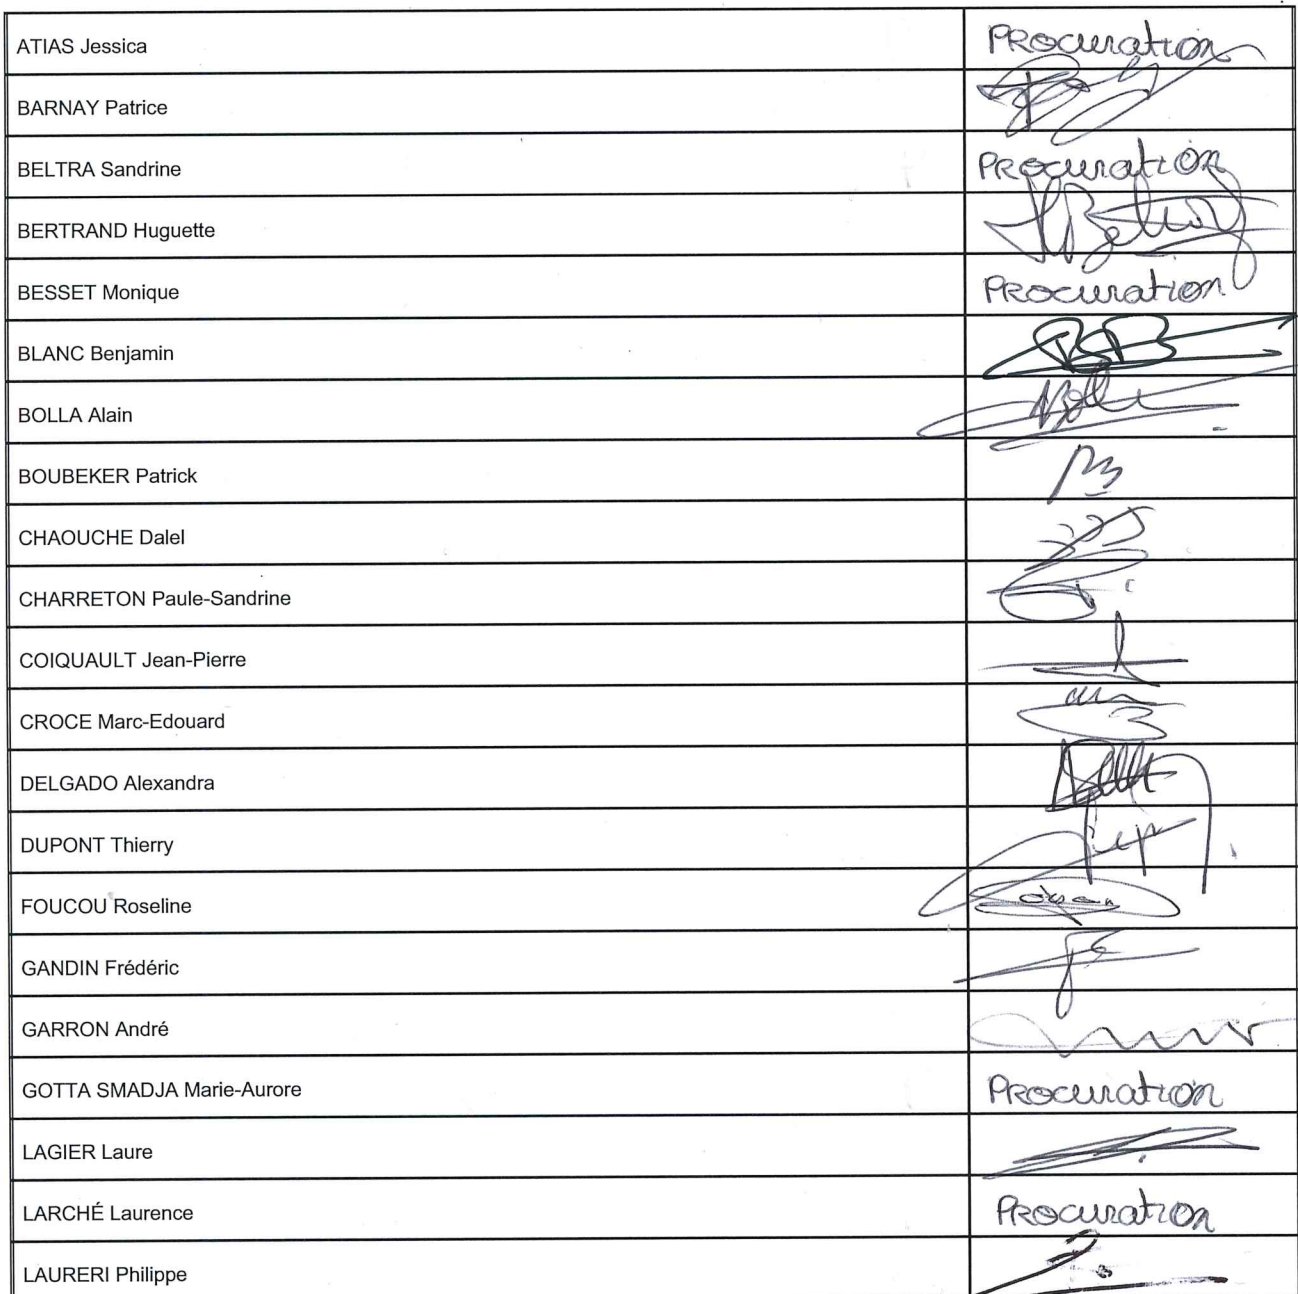 ATIAS Jessica Procuration
BARNAY Patrice
BELTRA Sandrine Procuration
BERTRAND Huguette
BESSET Monique Procuration
BLANC Benjamin
BOLLA Alain
BOUBEKER Patrick
CHAOUCHE Dalel
CHARRETON Paule-Sandrine
COIQUAULT Jean-Pierre
CROCE Marc-Edouard
DELGADO Alexandra
DUPONT Thierry
FOUCOU Roseline
GANDIN Frédéric
GARRON André
GOTTA SMADJA Marie-Aurore Procuration
LAGIER Laure
LARCHÉ Laurence Procuration
LAURERI Philippe